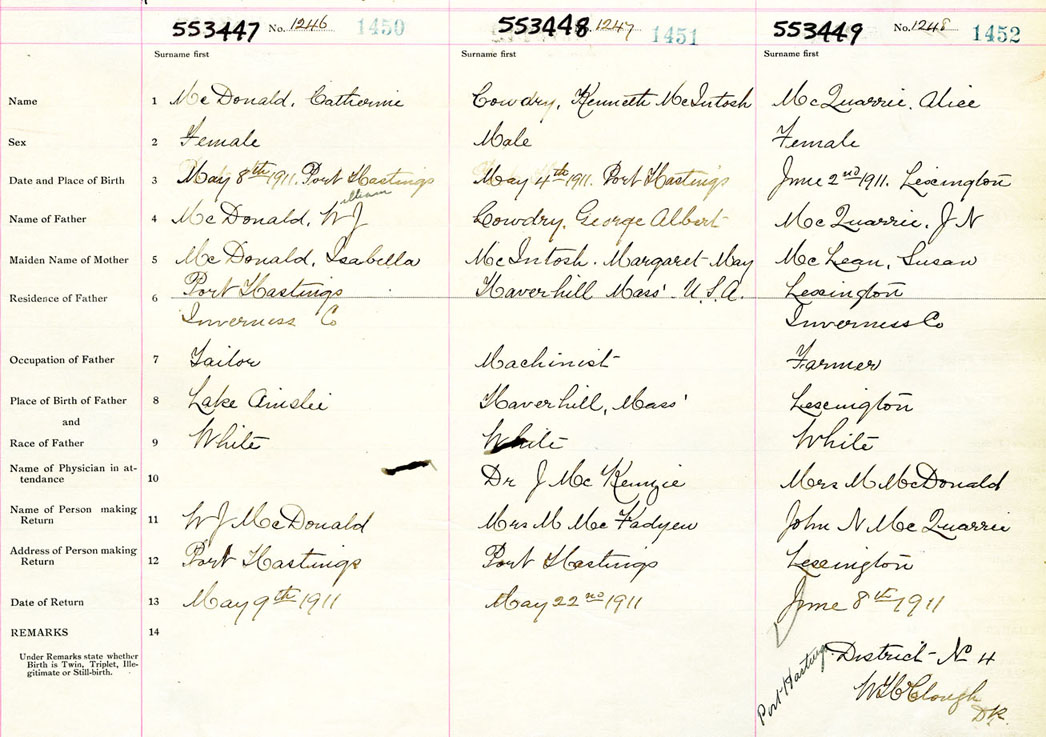 553447 No. 1246 1450 553448 1247 1451 553449 No. 1248 1452
Surname first Surname first Surname first
Name 1 McDonald, Catherine Cowdry, Kenneth McIntosh McQuarrie, Alice
Sex 2 Female Male Female
Date and Place of Birth 3 May 8th 1911. Port Hastings May 4th 1911. Port Hastings June 2nd 1911. Lexington
Name of Father 4 McDonald, W J Cowdry, George Albert McQuarrie, J N
Maiden Name of Mother 5 McDonald, Isabella McIntosh. Margaret May McLean, Susan
Residence of Father 6 Port Hastings Haverhill Mass' U.S.A. Lexington
Inverness Co Inverness Co
Occupation of Father 7 Tailor Machinist Farmer
Place of Birth of Father 8 Lake Ainslie Haverhill, Mass' Lexington
and
Race of Father 9 White White White
Name of Physician in at-
tendance 10 Dr J McKenzie Mrs M McDonald
Name of Person making
Return 11 W J McDonald Mrs M McFadyen John N McQuarrie
Address of Person making
Return 12 Port Hastings Port Hastings Lexington
Date of Return 13 May 9th 1911 May 22nd 1911 June 8th 1911
REMARKS 14
Under Remarks state whether
Birth is Twin, Triplet, Ille-
gitimate or Still-birth.
Port Hastings District No 4
W H Clough
DR.